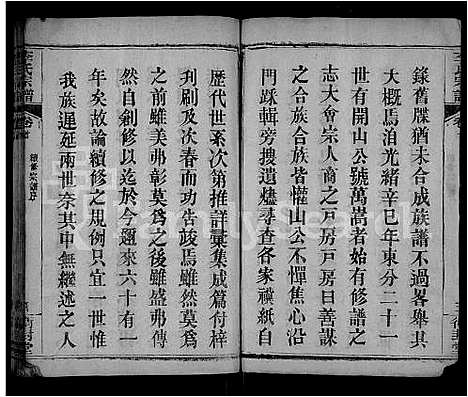 錄舊牒猶未合成族譜不過畧舉其
大概焉洎光緒辛巳年東分二十一
世有開山公號萬嵩者始有修譜之
志大會宗人商之戶房戶房曰善謀
之合族合族皆懽山公不憚焦心沿
門踩輯旁搜遺燼尋查各家禩紙自
歷代世系次第推詳彙集成篇付梓
刋刷及次春而功告竣焉雖然莫爲
之前雖美弗彰莫爲之後雖盛弗傳
然自剏修以迄於今迴來六十有一
年矣故論續修之規例只宜一世惟
我族遲延兩世奈其中無繼述之人
李氏宗譜
續修宗譜序